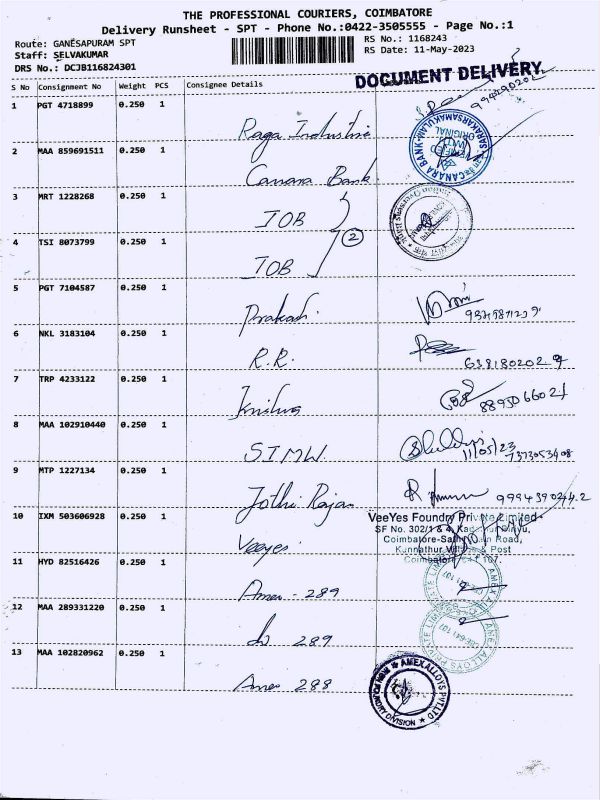 THE PROFESSIONAL COURIERS, COIMBATORE
Delivery Runsheet - SPT - Phone No.:0422-3505555 - Page No.:1
Route: GANESAPURAM SPT
RS No.: 1168243
Staff: SELVAKUMAR
RS Date: 11-May-2023
DRS No.: DCJB116824301
DOCUMENT DELIVERY
S No Consignment No Weight PCS Consignee Details
1 PGT 4718899 0.250 1
Raga Industrie
2 MAA 859691511 0.250 1
Canara Bank
CANARA BANK
3 MRT 1228268 0.250 1
IOB
4 TSI 8073799 0.250 1
2
IOB
5 PGT 7104587 0.250 1
Prakash
6 NKL 3183104 0.250 1
R.R.
7 TRP 4233122 0.250 1
8 MAA 102910440 0.250 1
STMW
11/05/23
7373053408
9 MTP 1227134 0.250 1
Jothi Rajan
9994390244.2
10 IXM 503606928 0.250 1
Veeyes
VeeYes Foundry Private Limited
SF No. 302/1 & 4,
Coimbatore- Road,
Kunnathur Post
Coimbatore 107.
11 HYD 82516426 0.250 1
Amex - 289
12 MAA 289331220 0.250 1
do 289
13 MAA 102820962 0.250 1
Amex 288
AMEX ALLOYS PVT LTD
FOUNDRY DIVISION